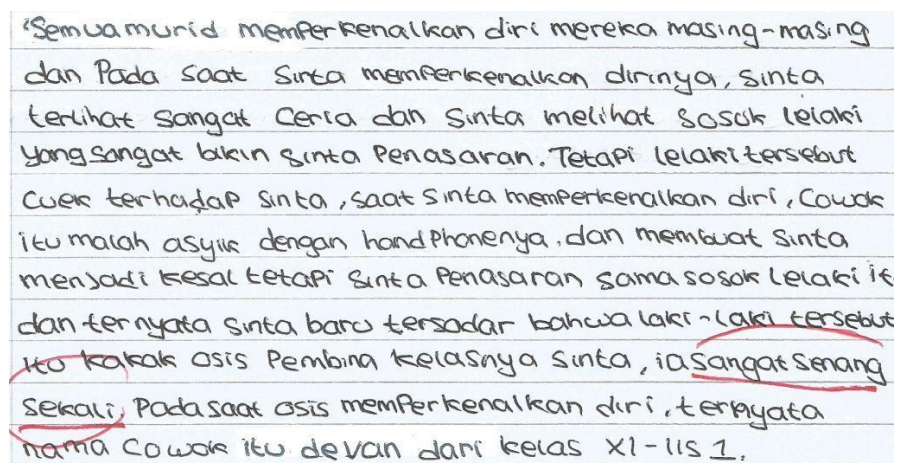 "Semua murid memperkenalkan diri mereka masing-masing
dan Pada saat Sinta memperkenalkan dirinya, sinta
terlihat sangat Ceria dan Sinta melihat sosok lelaki
yang sangat bikin sinta Penasaran. Tetapi lelaki tersebut
cuek terhadap sinta, saat sinta memperkenalkan diri, Cowok
itu malah asyik dengan handphonenya, dan membuat Sinta
menjadi kesal tetapi Sinta Penasaran sama sosok lelaki it
dan ternyata sinta baru tersadar bahwa laki-laki tersebut
itu kakak osis Pembina kelasnya Sinta, ia sangat senang
sekali, Pada saat osis memperkenalkan diri, ternyata
nama Cowok itu devan dari kelas XI-IIS 1.